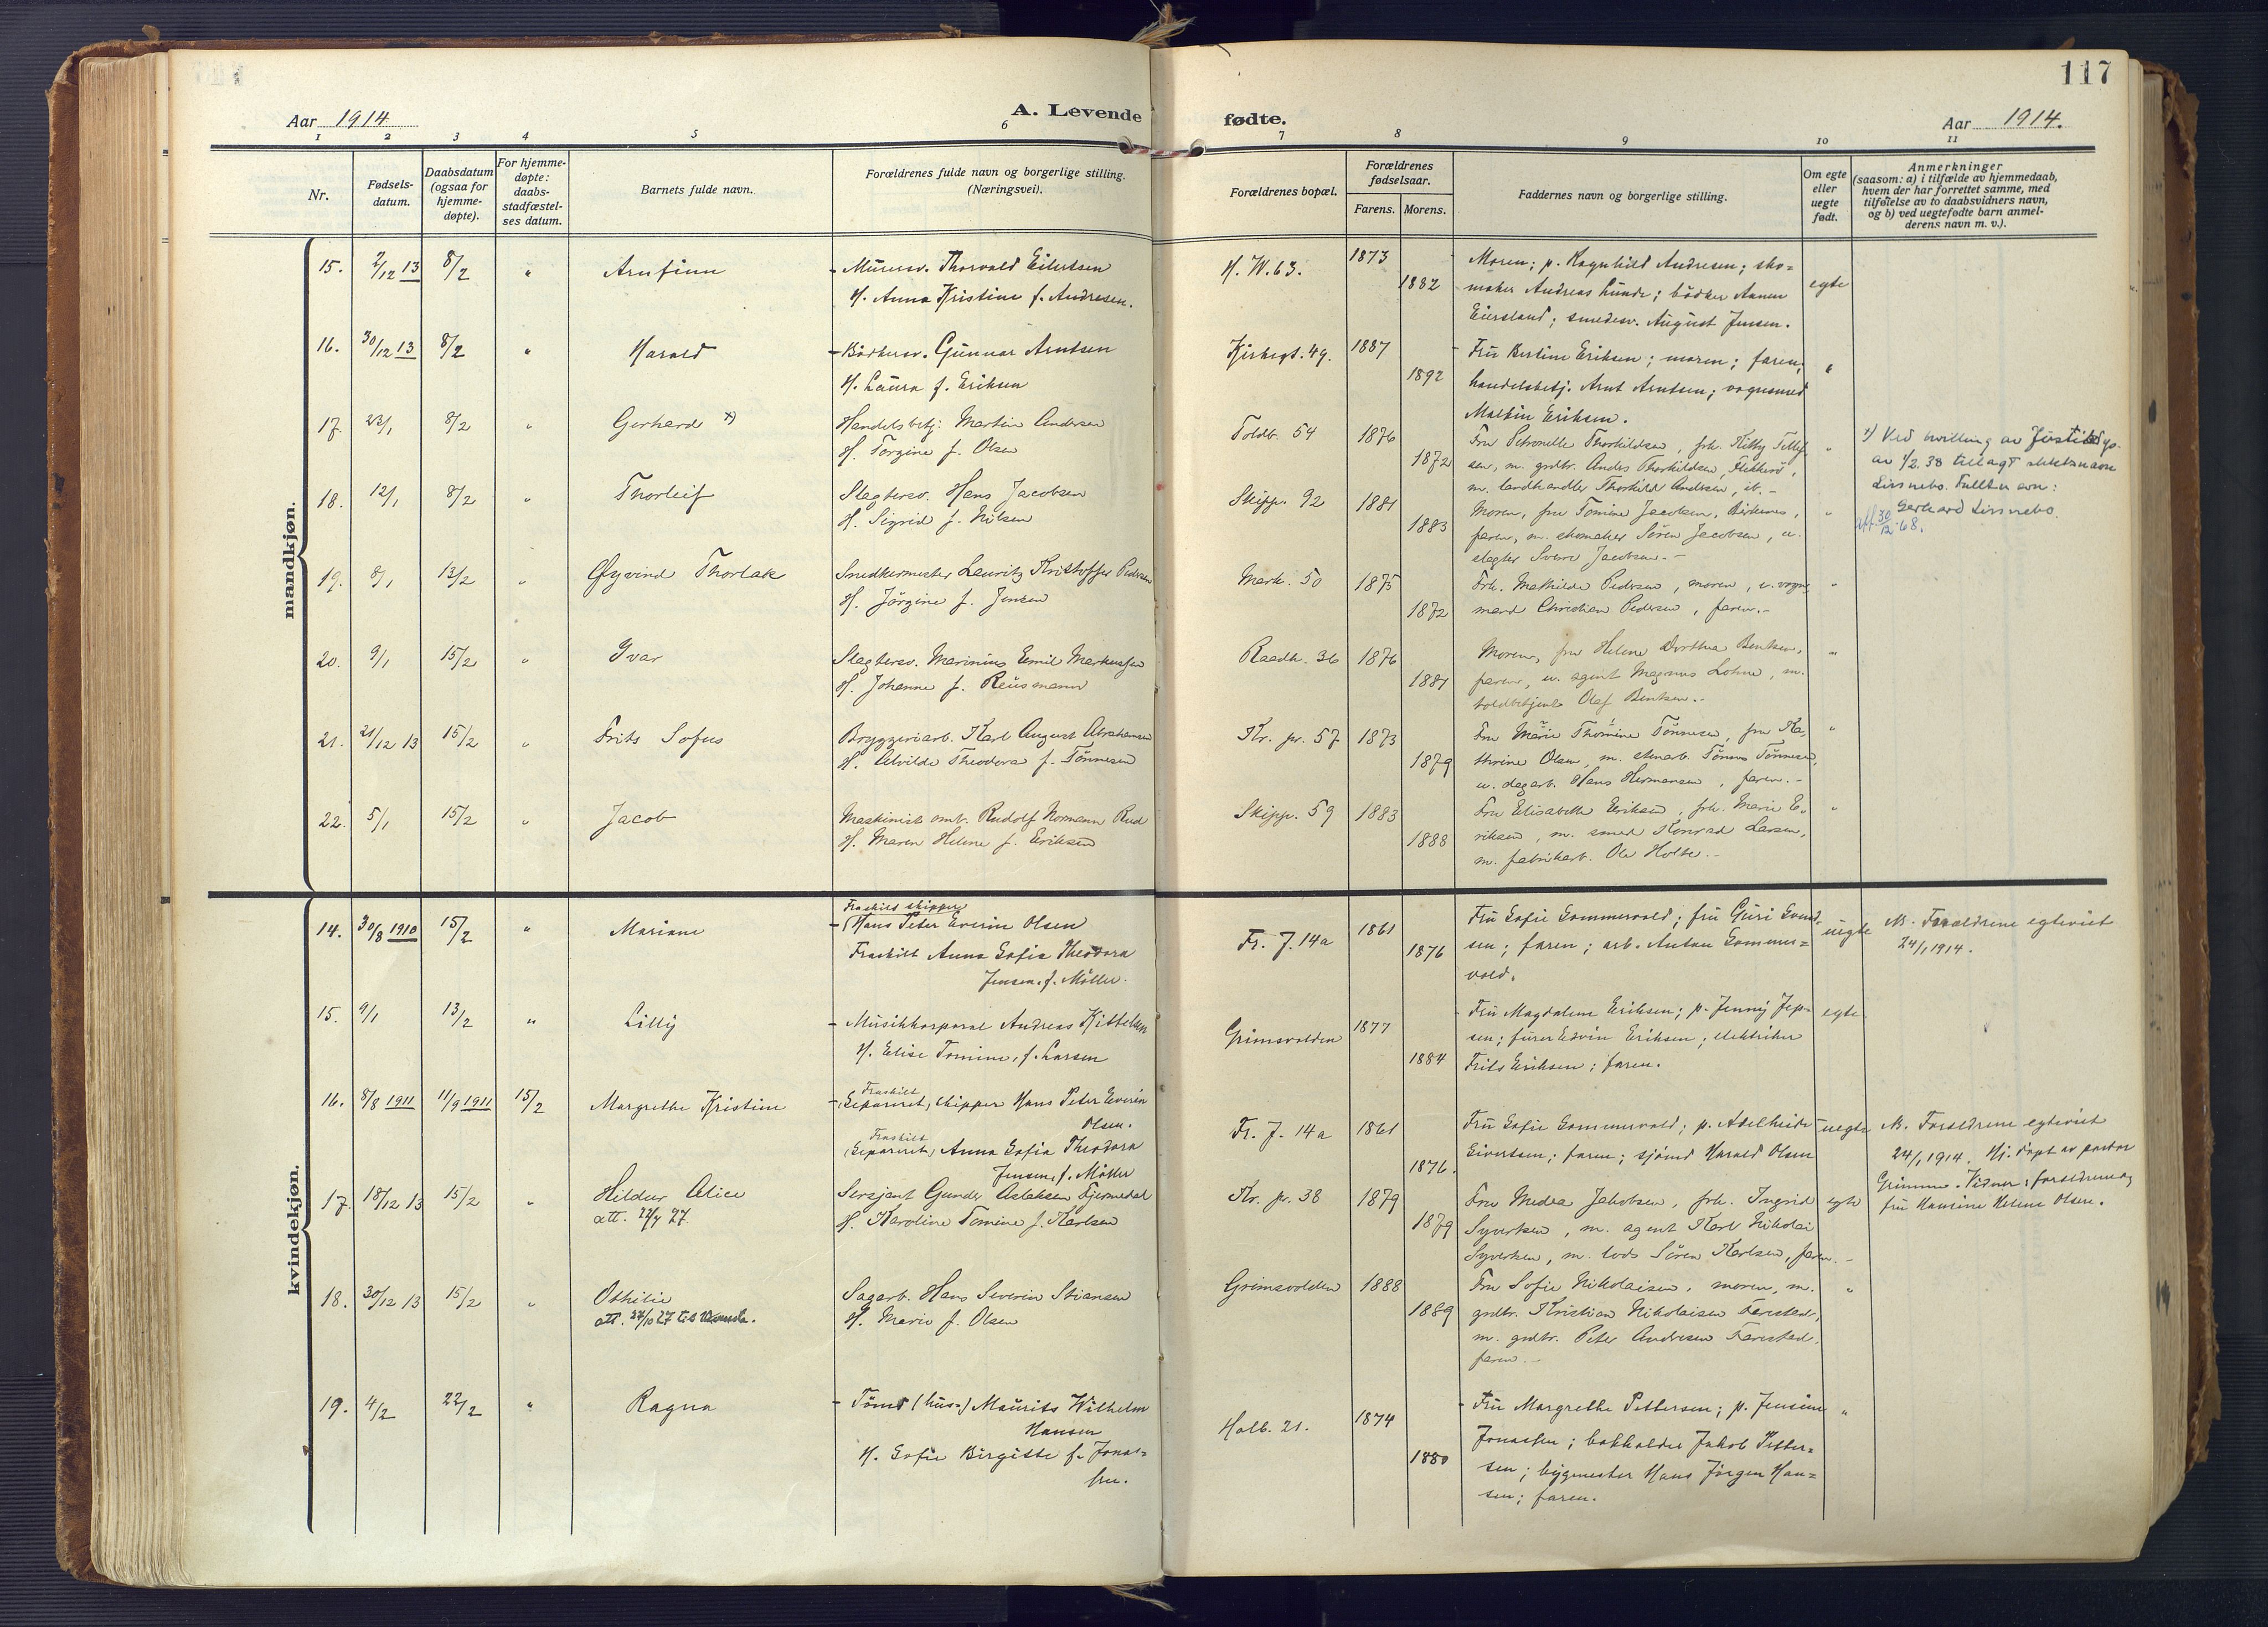 117
Aar 1914
A. Levende
fødte.
Aar 1914.
1 2 3 4 5 6 7 8 9 10 11
Nr.
Fødselsdatum.
Daabsdatum (ogsaa for hjemmedøpte).
For hjemmedøpte: daabsstadfæstelses datum.
Barnets fulde navn.
Forældrenes fulde navn og borgerlige stilling. (Næringsvei).
Forældrenes bopæl.
Forældrenes fødselsaar.
Farens. Morens.
Faddernes navn og borgerlige stilling.
Om egte eller uegte født.
Anmerkninger
(saasom: a) i tilfælde av hjemmedaab,
hvem der har forrettet samme, med
tilføielse av to daabsvidners navn,
og b) ved uegtefødte barn anmel-
derens navn m. v.).
mandkjøn.
15. 2/12 13 8/2 " Arnfinn
- Murersv. Thorvald Eilertsen
H. Anna Kristine f. Andresen.
H. W. 63. 1873 1882
Moren; p. Ragnhild Andresen; sko=
maker Andreas Lunde; bödker Aanen
Eiersland; smedesv. August Jensen.
egte
16. 30/12 13 8/2 " Harald
- Bödkersv. Gunnar Arntsen
H. Laura f. Eriksen
Kirkegt. 49. 1887 1892
- Fru Bertine Eriksen; moren; faren;
handelsbetj. Arnt Arntsen; vognsmed
Martin Eriksen.
"
17. 23/1 8/2 " Gerhard x)
Handelsbetj. Martin Andersen
H. Torgine f. Olsen
Toldb. 54 1876 1872
Fru Petronelle Thorkildsen, frk. Kitty Tellef
sen, m. grdbr. Anders Thorkildsen, Flekkerö,
m. landhandler Thorkild Andersen, ib. -
"
x) Ved bevilling av Justitsdep.
av 1/2 38 tillagt slektsnavn
Lissnebo. Fullt navn:
Gerhard Lissnebo.
30/12-68.
18. 12/1 8/2 " Thorleif
Slagtersv. Hans Jacobsen
H. Sigrid f. Nilsen
Skipp. 92 1881 1883
Moren, fru Tomine Jacobsen, Birkenes,
faren, m. skomaker Sören Jacobsen, u.
slagter Sverre Jacobsen. -
"
19. 8/1 13/2 " Øyvind Thorlak
Snedkermester Lauritz Kristoffer Pedersen
H. Jörgine f. Jensen
Mark. 50 1875 1872
Frk. Mathilde Pedersen, moren, u. vogn
mand Christian Pedersen, faren. -
"
20. 9/1 15/2 " Yvar
Slagtersv. Marinius Emil Markussen
H. Johanne f. Reusmann
Raadh. 36 1876 1881
Moren, fru Helene Dorthea Bentsen,
faren, u. agent Magnus Lohne, m.
toldbetjent Olaf Bentsen. -
"
21. 21/12 13 15/2 " Frits Sofus
Bryggeriarb. Karl August Abrahamsen
H. Alvilde Theodora f. Tönnesen
Kr. pr. 57 1873 1879
Fru Marie Thomine Tönnesen, fru Ka,
thrine Olsen, m. stenarb. Tönnes Tönnesen,
u. dagarb. Hans Hermansen, faren. -
"
22. 5/1 15/2 " Jacob
Maskinist omb. Rudolf Normann Rud
H. Maren Helene f. Eriksen
Skipp. 59 1883 1888
Fru Elisabeth Eriksen, frk. Marie E,
riksen, m. smed Konrad Larsen,
m. fabrikarb. Ole Holte. -
"
kvindekjøn.
14. 30/8 1910 15/2 " Mariane
Fraskilt skipper
- Hans Peter Everin Olsen
Fraskilt Anna Sofie Theodora
Jensen, f. Möller.
Fr. J. 14a 1861 1876
Fru Sofie Sommervold; fru Guri Svend
sen; faren; arb. Anton Sommer=
vold.
uegte
NB. Forældrene egteviet
24/1 1914.
15. 9/1 13/2 " Lilly
- Musikkorporal Andreas Kittelsen
H. Elise Tomine, f. Larsen
Grimsvolden 1877 1884
- Fru Magdalene Eriksen; p. Jenny Jep=
sen; furer Edvin Eriksen; elektriker
Frits Eriksen; faren.
egte
16. 8/8 1911 11/9 1911 15/2 Margrethe Kristine
Fraskilt
- (Separeret) skipper Hans Peter Everin
Olsen.
Fraskilt
(Separeret) Anna Sofie Theodora
Jensen, f. Möller
Fr. J. 14a 1861 1876.
Fru Sofie Sommervold; p. Adelheide
Sivertsen; faren; sjömd Harald Olsen
uegte
NB. Forældrene egteviet
24/1 1914. Hj. döpt av pastor
Grimme. Vidner: forældrene og
fru Hansine Helene Olsen.
17. 18/12 13 15/2 " Hildur Alice
att. 22/7 27.
Sersjant Gunder Aslaksen Fjermedal
H. Karoline Tomine f. Karlsen
Kr. pr. 38 1879 1879
Fru Medea Jakobsen, frk. Ingrid
Syvertsen, m. agent Karl Nikolai
Syvertsen, m. lods Sören Karlsen, faren. -
egte
18. 30/12 13 15/2 " Othilie
att. 27/10 27
Sagarb. Hans Severin Stiansen
H. Marie f. Olsen
Grimsvolden 1888 1889
Fru Sofie Nikolaisen, moren, m.
grdbr. Kristian Nikolaisen Farestad,
m. grdbr. Peter Andresen Farestad,
faren. -
"
19. 4/2 22/2 " Ragna
- Tömr (hus-) Maurits Wilhelm
Hansen
H. Sofie Birgitte f. Jonas=
sen.
Holb. 21. 1874 1880
- Fru Margrethe Pettersen; p. Jensine
Jonassen; bokholder Jakob Petter=
sen; bygmester Hans Jörgen Han=
sen; faren.
"